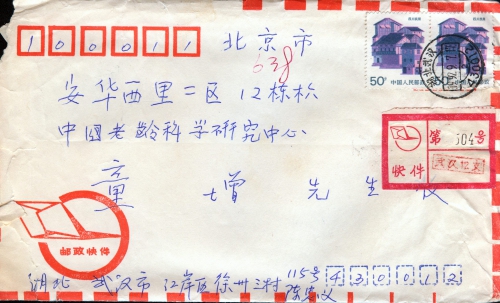 100011 北京市
638
安华西里二区12栋
中国老龄科学研究中心
童 增 先 生 收
50分 中国人民邮政
第 504号
快件
邮政快件
湖北 武汉市 江岸区徐州三村 115号 430012